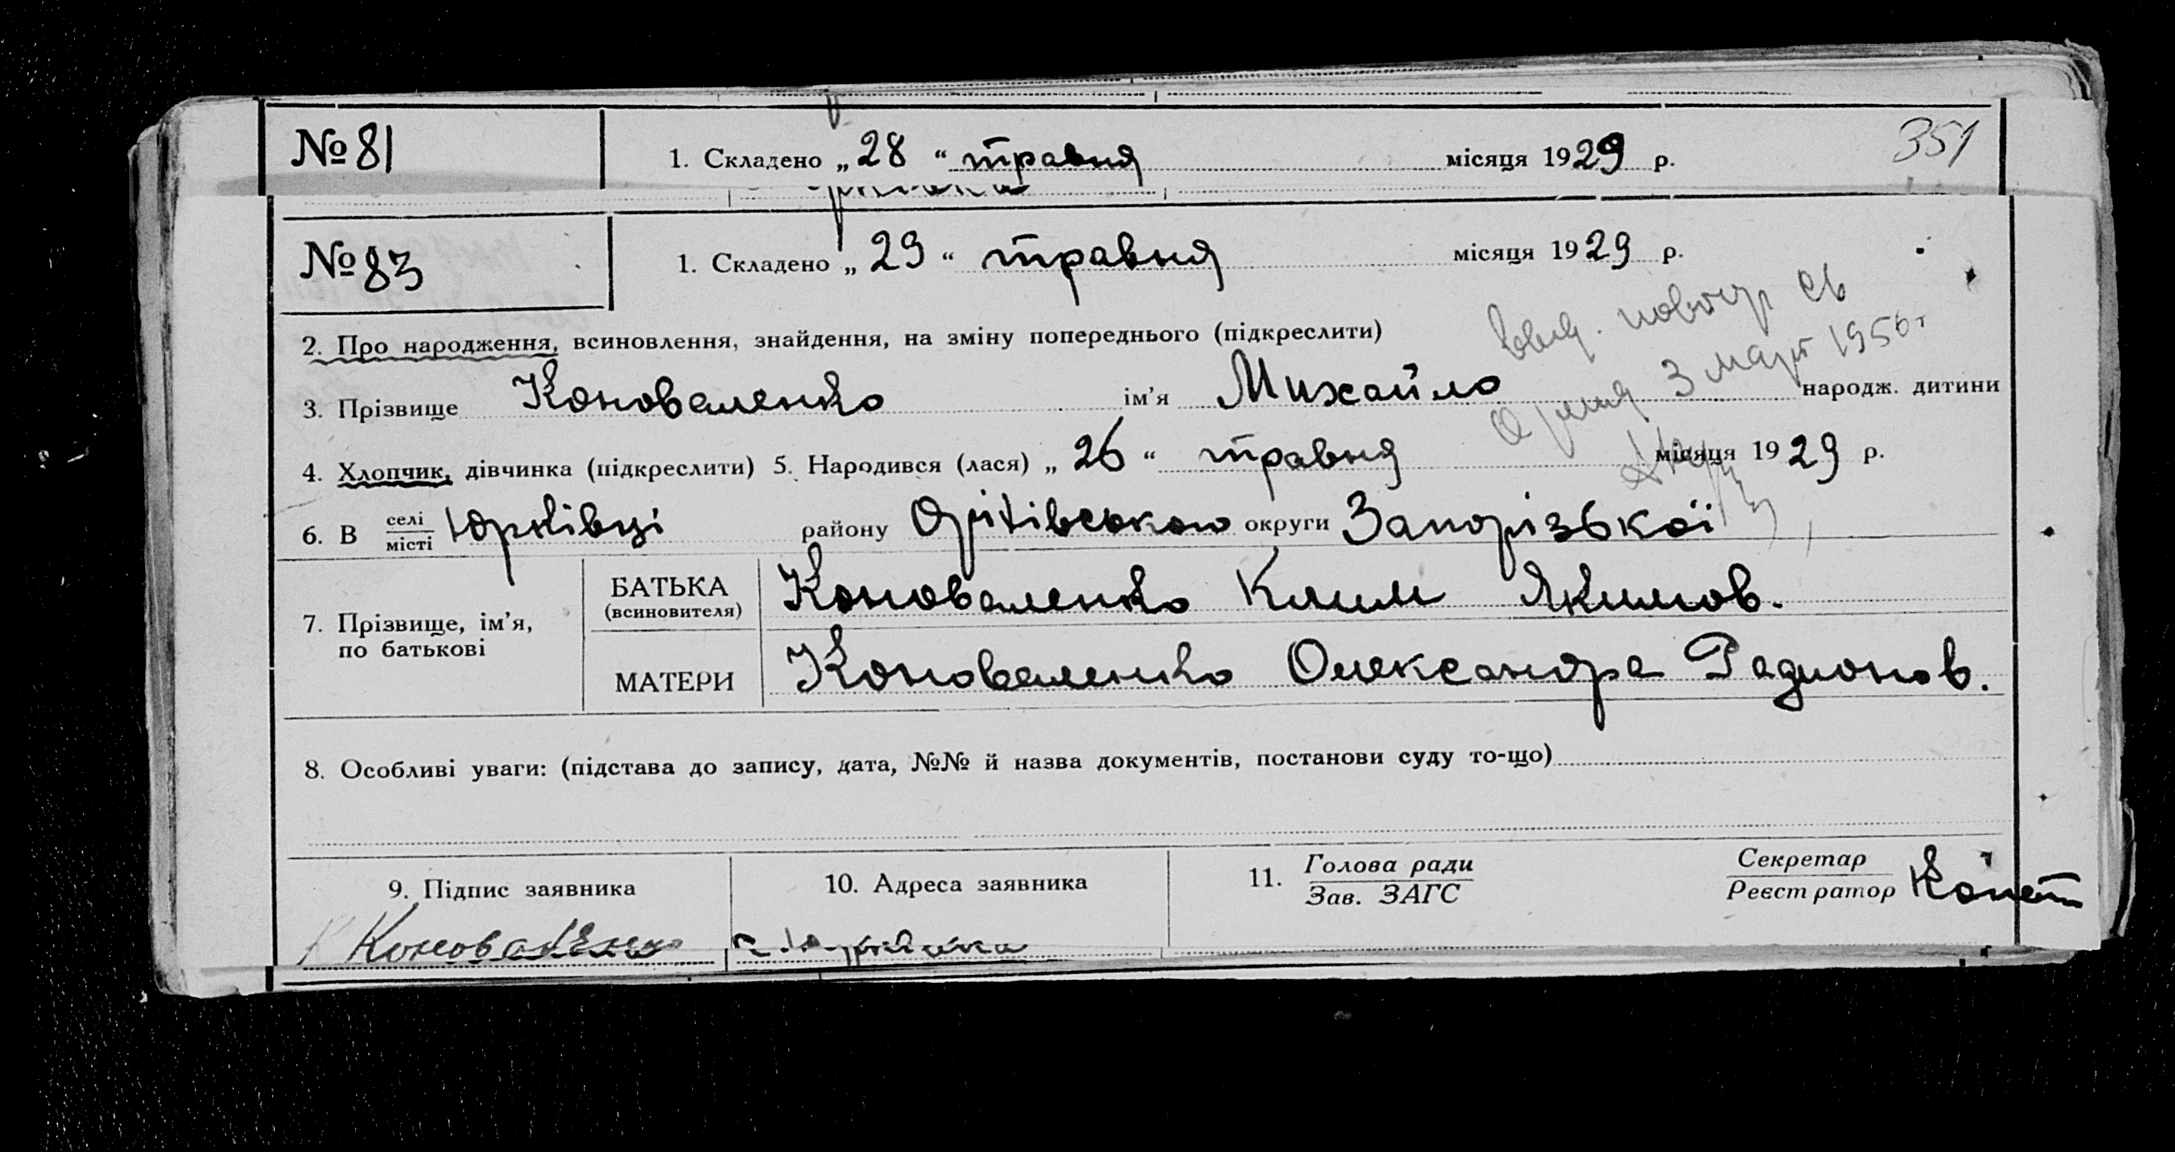 № 81
1. Складено „ 28 “ травня місяця 1929 р.
351
№ 83
1. Складено „ 29 “ травня місяця 1929 р.
2. Про народження, всиновлення, знайдення, на зміну попереднього (підкреслити)
3. Прізвище Коноваленко ім’я Михайло народж. дитини
3 март 1956 г
4. Хлопчик, дівчинка (підкреслити) 5. Народився (лася) „ 26 “ травня місяця 1929 р.
6. В селі / місті Юрківці району Оріхівського округи Запорізької
7. Прізвище, ім’я, по батькові
БАТЬКА (всиновителя) Коноваленко Клим Якимов.
МАТЕРИ Коноваленко Олександра Радионов.
8. Особливі уваги: (підстава до запису, дата, №№ й назва документів, постанови суду то-що)
9. Підпис заявника
10. Адреса заявника
11. Голова ради / Зав. ЗАГС
Секретар / Реєстратор
Коноваленко
с. Юрківка